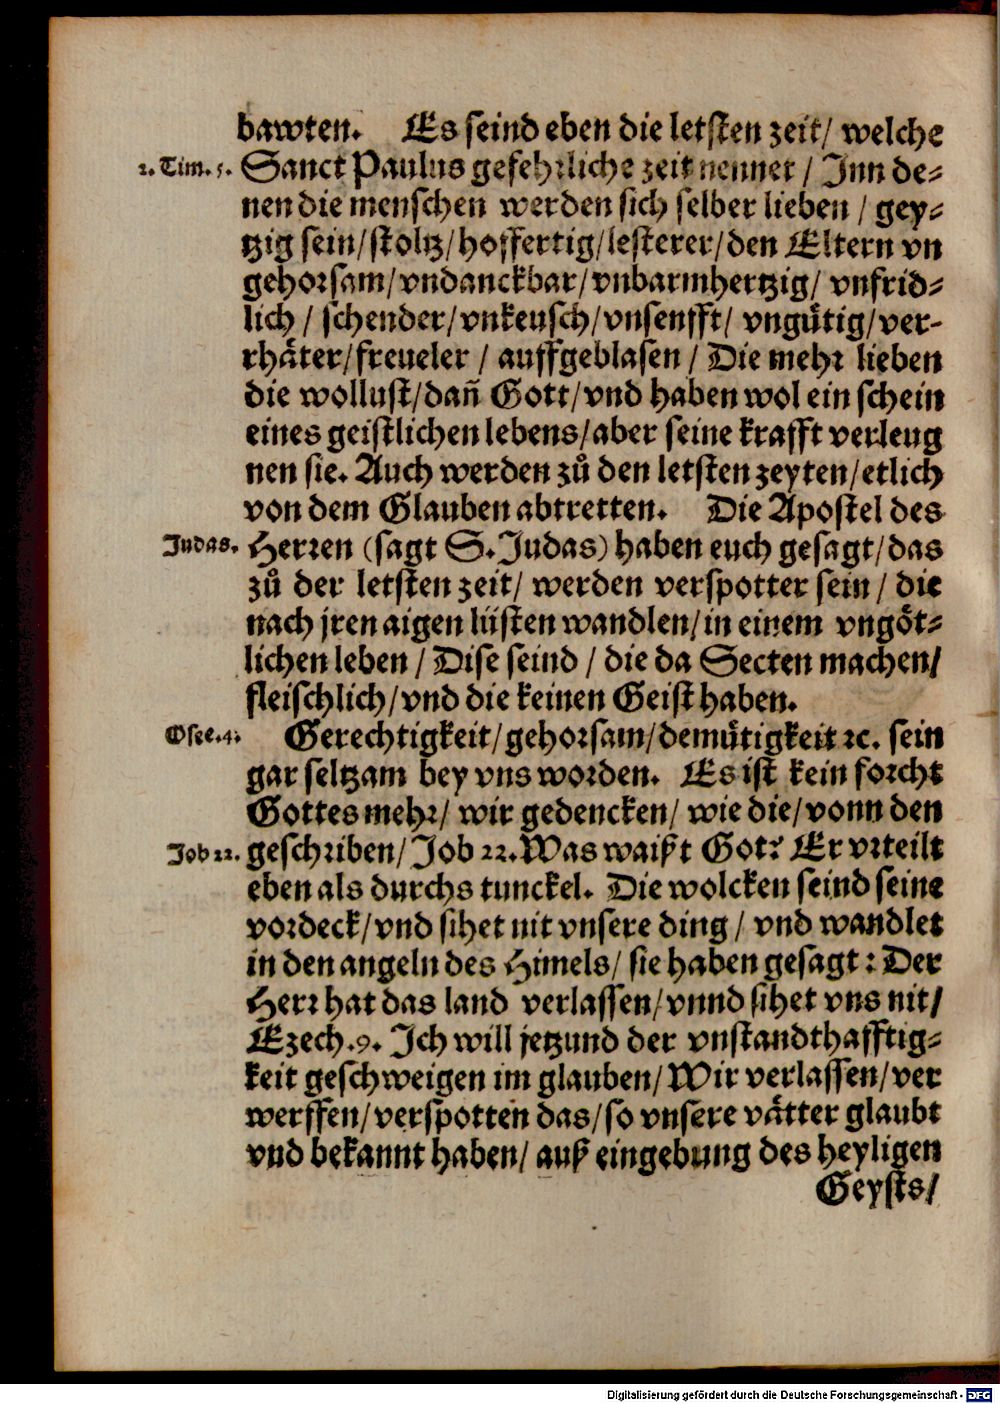 bawten. Es seind eben die letsten zeit/ welche
2. Tim. 5. Sanct Paulus gefehrliche zeit nennet / Jnn de⸗
nen die menschen werden sich selber lieben / gey⸗
tzig sein/stoltz/hoffertig/lesterer/den Eltern vn
gehorsam/vndanckbar/vnbarmhertzig/ vnfrid⸗
lich / schender/vnkeusch/vnsenfft/ vnguͤtig/ver-
rhaͤter/freueler / auffgeblasen / Die mehr lieben
die wollust/dañ Gott/vnd haben wol ein schein
eines geistlichen lebens/aber seine krafft verleug
nen sie. Auch werden zuͦ den letsten zeyten/etlich
von dem Glauben abtretten. Die Apostel des
Judas. Herren (sagt S. Judas) haben euch gesagt/das
zuͦ der letsten zeit/ werden verspotter sein / die
nach jren aigen lüsten wandlen/in einem vngoͤt⸗
lichen leben / Dise seind / die da Secten machen/
fleischlich/vnd die keinen Geist haben.
Osee.4. Gerechtigkeit/gehorsam/demuͤtigkeit ꝛc. sein
gar seltzam bey vns worden. Es ist kein forcht
Gottes mehr/ wir gedencken/ wie die/vonn den
Job 22. geschriben/ Job 22. Was waißt Got? Er vrteilt
eben als durchs tunckel. Die wolcken seind seine
vordeck/vnd sihet nit vnsere ding / vnd wandlet
in den angeln des Himels/ sie haben gesagt: Der
Herr hat das land verlassen/vnnd sihet vns nit/
Ezech.9. Jch will jetzund der vnstandthafftig⸗
keit geschweigen im glauben/ Wir verlassen/ver
werffen/verspotten das/so vnsere vaͤtter glaubt
vnd bekannt haben/ auß eingebung des heyligen
Geysts/
Digitalisierung gefördert durch die Deutsche Forschungsgemeinschaft - DFG